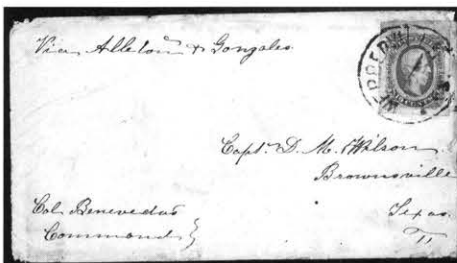 Via Alleton & Gonzales
Capt. D. M. Wilson
Brownsville
Texas
Col Benevedas
Command